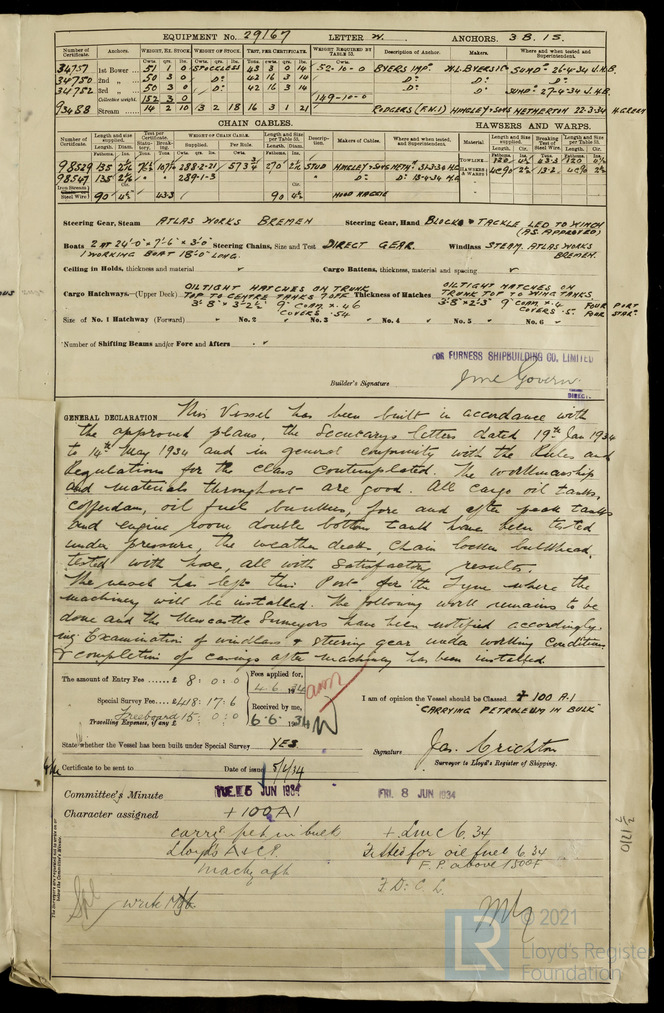 EQUIPMENT No. 29167 LETTER W. ANCHORS. 3 B. 1 S.
Number of Certificate. Anchors. WEIGHT, EX. STOCK. WEIGHT OF STOCK. TEST, PER CERTIFICATE. WEIGHT REQUIRED BY TABLE 53. Description of Anchor. Makers. Where and when tested and Superintendent.
Cwts. qrs. lbs. Cwts. qrs. lbs. Tons. cwts. qrs. lbs. Cwts.
34757 1st Bower 51 1 0 STOCKLESS 43 3 0 14 52-10-0 BYERS IMP. W.L. BYERS & Co SUND. 26-4-34 J.H.B.
34750 2nd „ 50 3 0 Do: 42 16 3 14 Do: Do: Do:
34752 3rd „ 50 3 0 Do: 42 16 3 14 Do: Do: SUND. 27-4-34 J.H.B.
Collective weight. 152 3 0 149-10-0
93488 Stream 14 2 10 3 2 18 16 3 1 21 RODGERS (F.W.I) HINGLEY & SONS NETHERTON 22-3-34 H. GREEN
CHAIN CABLES. HAWSERS AND WARPS.
Number of Certificate. Length and size supplied. Test per Certificate. WEIGHT OF CHAIN CABLE. Length and size per Table 53. Description. Makers of Cables. Where and when tested, and Superintendent. Material Length and Size supplied. Breaking Test of Steel Wire. Length and Size per Table 53.
Supplied. Per Rule.
98529 135 288-2-21 573¾ 270 STUD HINGLEY & SONS NETH. 21-3-34 TOWLINE 120 120
98547 135 289-1-3 Do: Do: 13-4-34 HAWSERS & WARPS
Iron Stream or Steel Wire 90 4½ 43·3 90 4½ HOOD HAGGIE
Steering Gear, Steam ATLAS WORKS BREMEN Steering Gear, Hand BLOCK & TACKLE LED TO WINCH
(AS APPROVED)
Boats 2 AT 24'-0" × 7'-6" × 3'-0" Steering Chains, Size and Test DIRECT GEAR. Windlass STEAM. ATLAS WORKS
1 WORKING BOAT 18'-0" LONG. BREMEN.
Ceiling in Holds, thickness and material Cargo Battens, thickness, material and spacing
Cargo Hatchways.—(Upper Deck) OILTIGHT HATCHES ON TRUNK Thickness of Hatches OILTIGHT HATCHES ON
TOP TO CENTRE TANKS 7 OFF TRUNK TOP TO WING TANKS
3'-8" × 3'-2½" 9" COAM. × ·46 3'-8" × 2'-3" 9" COAM. × ·4 FOUR PORT
COVERS ·54 COVERS ·5 FOUR STAR
Size of No. 1 Hatchway (Forward) No. 2 No. 3 No. 4 No. 5 No. 6
Number of Shifting Beams and/or Fore and Afters
FOR FURNESS SHIPBUILDING CO. LIMITED
Builder's Signature
GENERAL DECLARATION This Vessel has been built in accordance with
the approved plans, the Secretarys letters dated 19th Jan 1934
to 14th May 1934 and in general conformity with the Rules and
Regulations for the class contemplated. The workmanship
and materials throughout are good. All cargo oil tanks,
cofferdam, oil fuel bunkers, fore and after peak tanks
and engine room double bottom tank have been tested
under pressure, the weather decks, chain locker bulkhead,
tested with hose, all with satisfactory results.
The vessel has left this Port for the Tyne where the
machinery will be installed. The following work remains to be
done and the Newcastle Surveyors have been notified accordingly.
viz Examination of windlass & steering gear under working conditions
& completion of casings after machinery has been installed.
The amount of Entry Fee £ 8 : 0 : 0 Fees applied for, 4.6.1934
Special Survey Fee £ 418 : 17 : 6 Received by me,
Freeboard 15 : 0 : 0 6.6.1934
Travelling Expenses, if any £
I am of opinion the Vessel should be Classed + 100 A·1
"CARRYING PETROLEUM IN BULK"
State whether the Vessel has been built under Special Survey YES
Signature Jas. Crichton
Surveyor to Lloyd's Register of Shipping.
Certificate to be sent to Date of issue 8/6/34
Committee's Minute TUE. 5 JUN 1934 FRI. 8 JUN 1934
Character assigned + 100 A1
carrg petm in bulk + LMC 6.34
Lloyd's A & CP. Fitted for oil fuel 6.34
Machy aft F.P. above 150°F
F.D. C.L.
© 2021
LR Lloyd's Register
Foundation